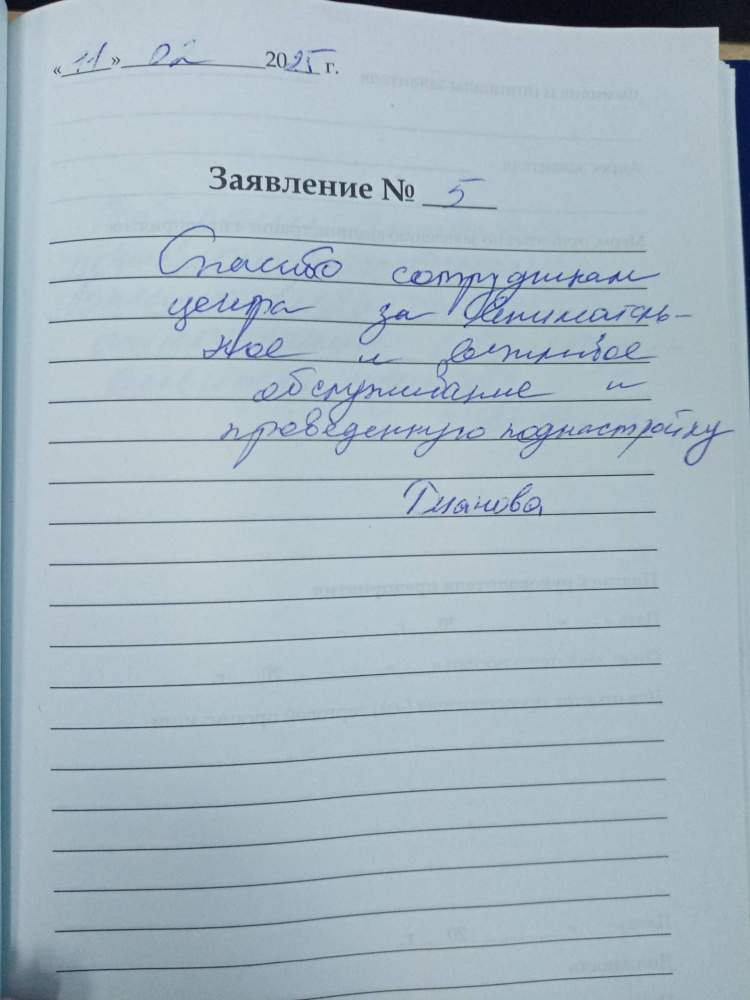 «11» 02 2025 г.
Заявление № 5
Спасибо сотрудникам
центра за вниматель-
ное и вежливое
обслуживание и
проведенную поднастройку